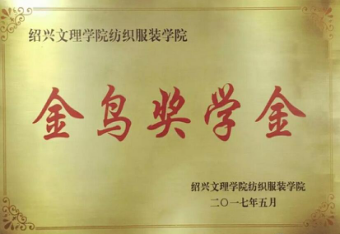 绍兴文理学院纺织服装学院
金鸟奖学金
绍兴文理学院纺织服装学院
二〇一七年五月